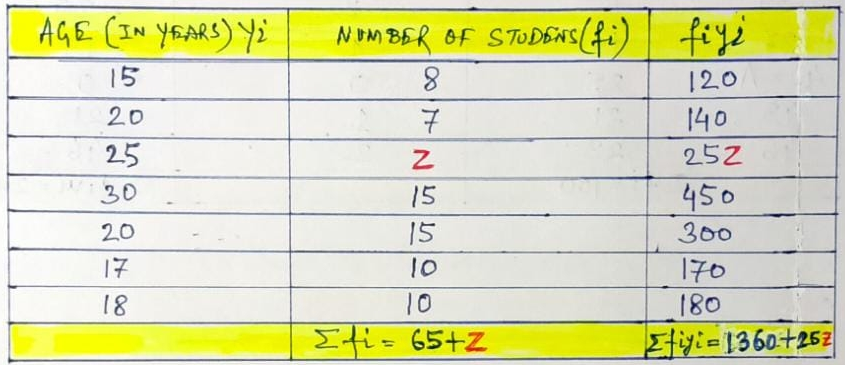 AGE (IN YEARS) yi NUMBER OF STUDENS (fi) fiyi
15 8 120
20 7 140
25 Z 25Z
30 15 450
20 15 300
17 10 170
18 10 180
Σfi = 65+Z Σfiyi = 1360+25Z